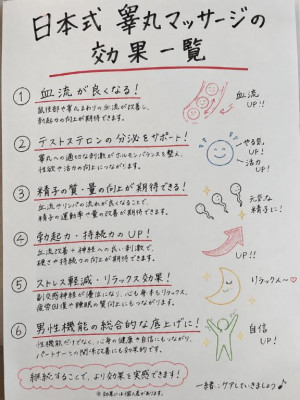 日本式 睾丸マッサージの
効果一覧
① 血流が良くなる！
鼠径部や睾丸まわりの血流が改善し、
勃起力の向上が期待できます。
血流
UP!!
② テストステロンの分泌をサポート！
睾丸への適切な刺激がホルモンバランスを整え、
性欲や活力の向上につながります。
やる気
UP!
活力
UP!
③ 精子の質・量の向上が期待できる！
血流やリンパの流れが良くなることで、
精子の運動率や量の改善が期待できます。
元気な
精子に！
④ 勃起力・持続力のUP！
血流改善＋神経への良い刺激で、
硬さや持続力の向上が期待できます。
UP!!
⑤ ストレス軽減・リラックス効果！
副交感神経が優位になり、心も身体もリラックス。
疲労回復や睡眠の質向上にもつながります。
リラックス〜♡
⑥ 男性機能の総合的な底上げに！
性機能だけでなく、心身の健康や自信にもつながり、
パートナーとの関係改善にも効果的です。
自信
UP！
継続することで、より効果を実感できます！
※効果には個人差があります。
一緒にケアしていきましょう♪